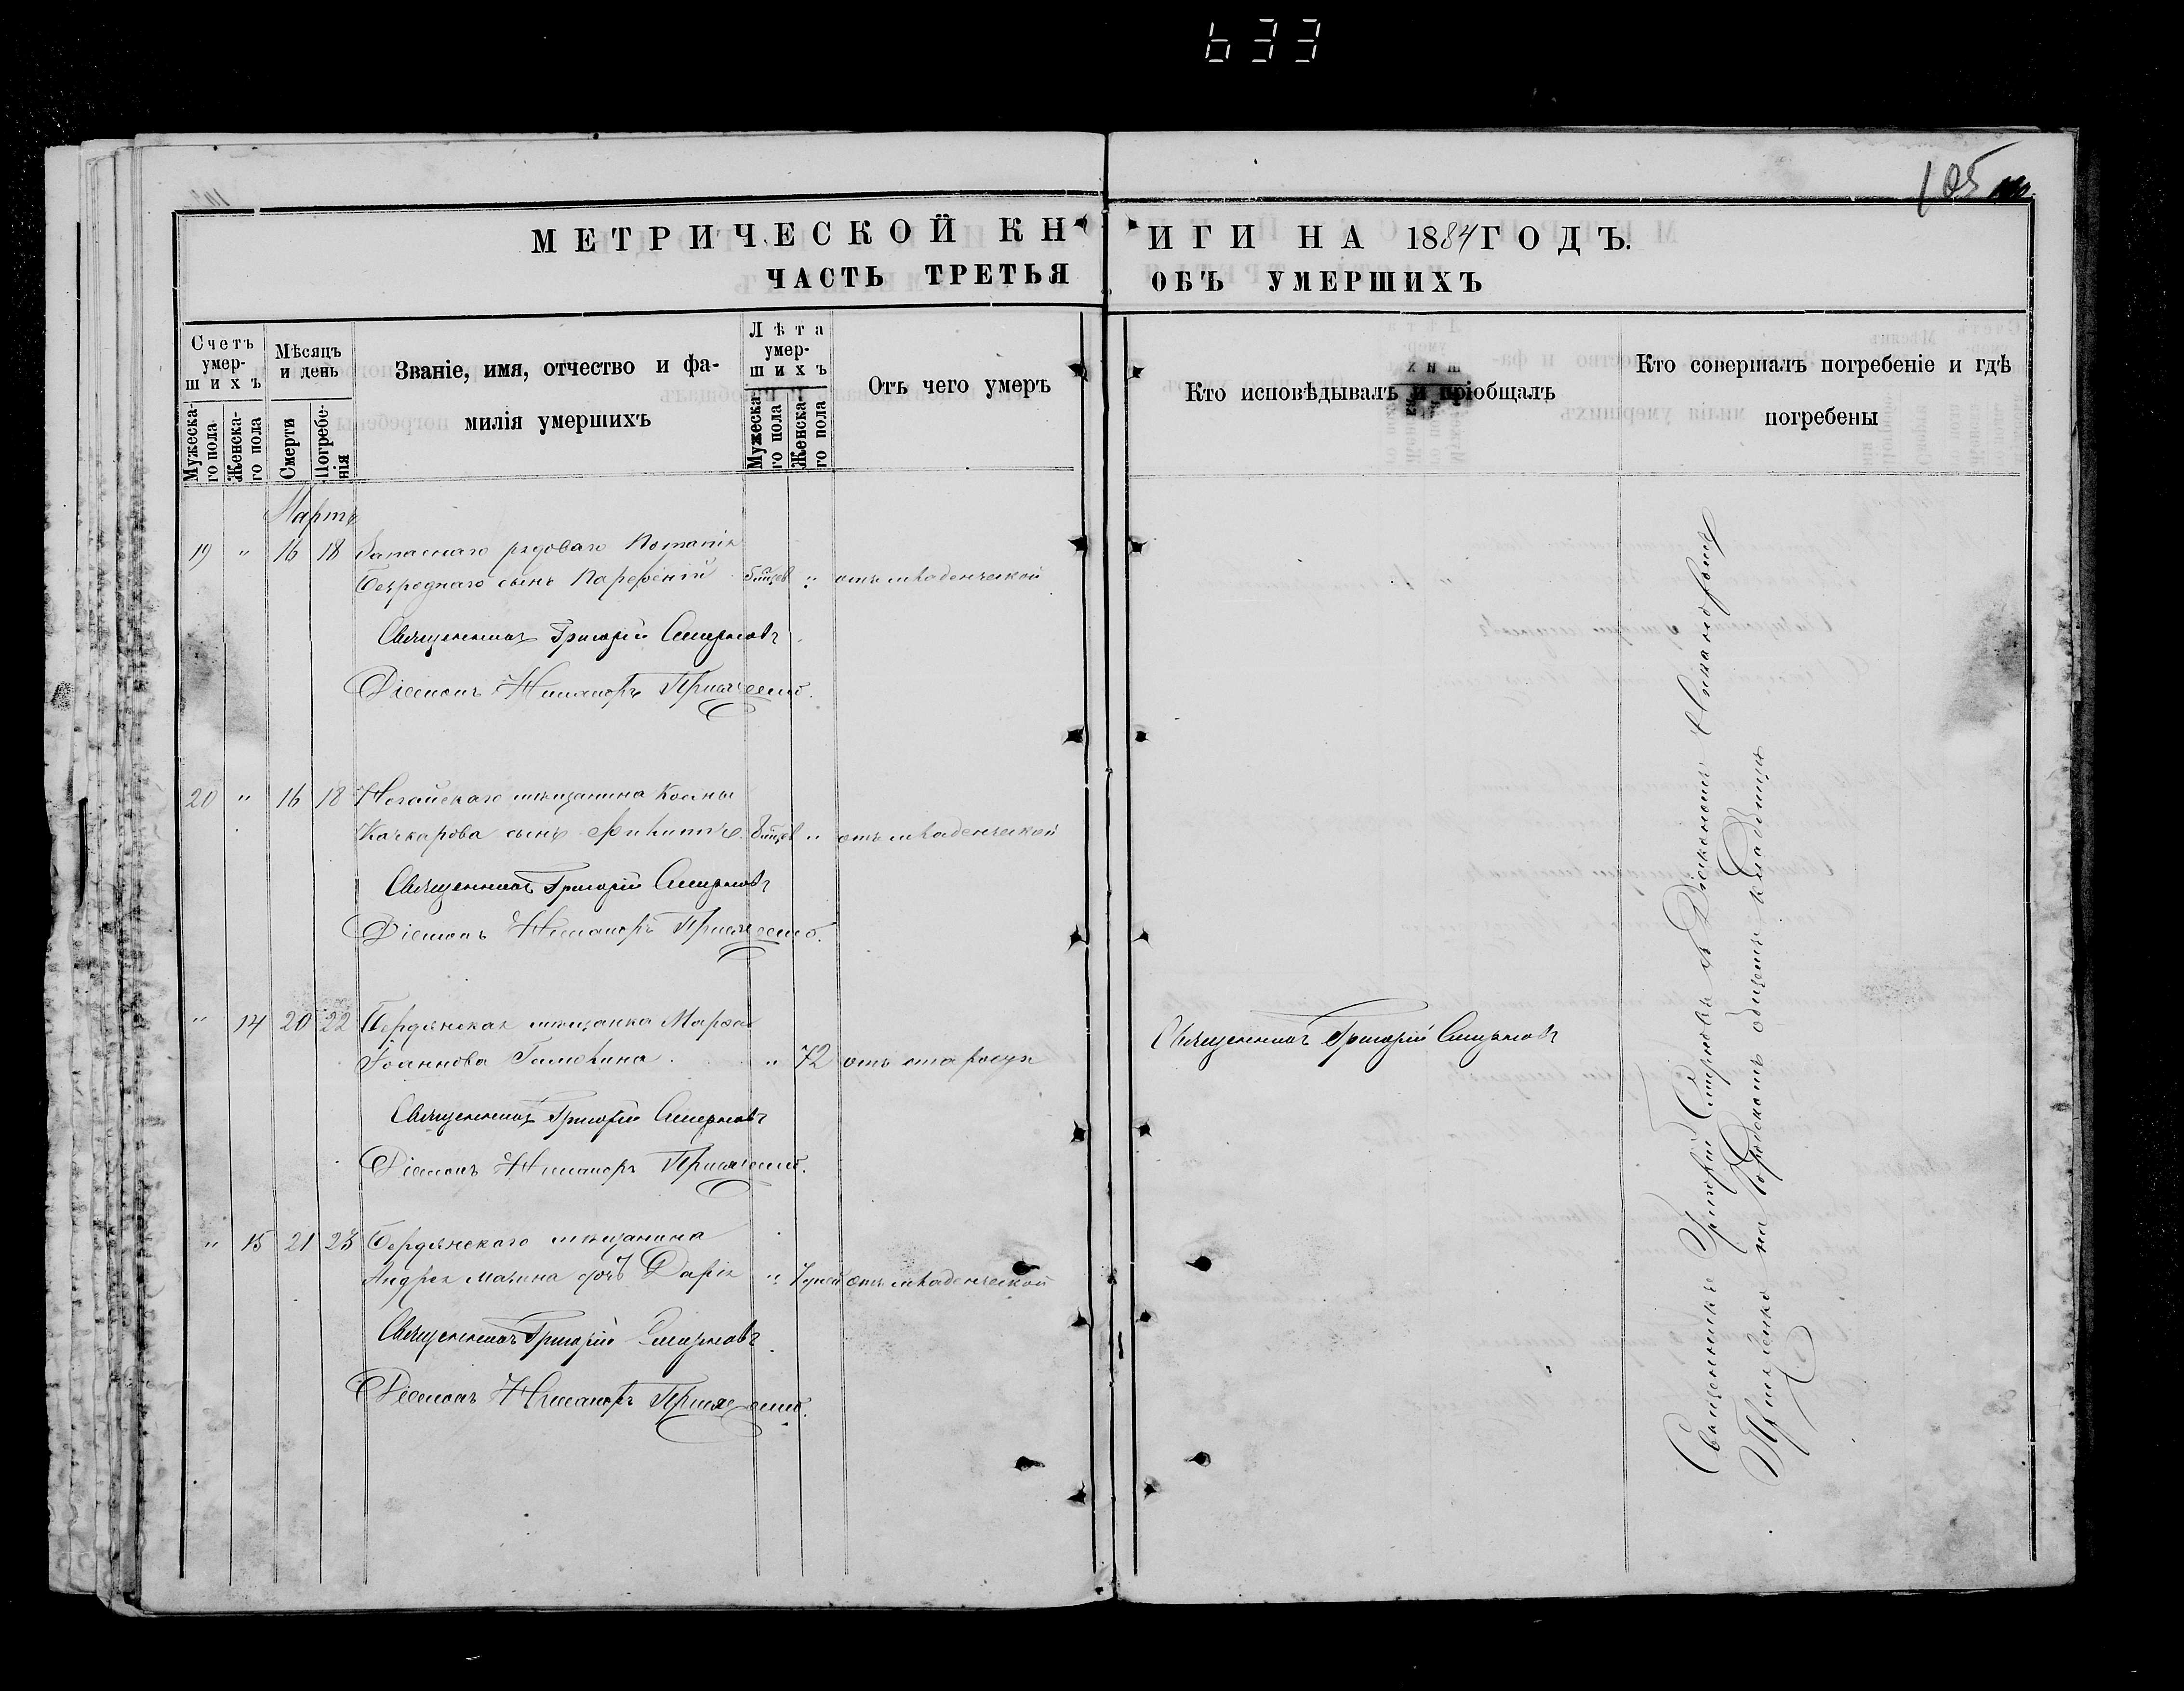 633
105
МЕТРИЧЕСКОЙ КНИГИ НА 1884 ГОДЪ.
ЧАСТЬ ТРЕТЬЯ ОБЪ УМЕРШИХЪ
Счетъ умершихъ
Мужескаго пола
Женскаго пола
Мѣсяцъ и день
Смерти
Погребенія
Званіе, имя, отчество и фамилія умершихъ
Лѣта умершихъ
Мужескаго пола
Женскаго пола
Отъ чего умеръ
Кто исповѣдывалъ и пріобщалъ
Кто совершалъ погребеніе и гдѣ погребены
Мартъ
19 " 16 18 Запаснаго рядоваго
сынъ Парфеній " отъ младенческой
Священникъ Григорій Смирновъ
Діаконъ Никаноръ
20 " 16 18 Ногайскаго мѣщанина Космы
Качкарова сынъ " отъ младенческой
Священникъ Григорій Смирновъ
Діаконъ Никаноръ
" 14 20 22 Бердянская мѣщанка Марѳа
Іоаннова " 72 отъ старости
Священникъ Григорій Смирновъ
Священникъ Григорій Смирновъ
Діаконъ Никаноръ
" 15 21 23 Бердянскаго мѣщанина
Андрея дочь Дарія " 7 дней отъ младенческой
Священникъ Григорій Смирновъ
Діаконъ Никаноръ
Священникъ Григорій Смирновъ съ Діакономъ Никаноромъ
на Городскомъ общемъ кладбищѣ